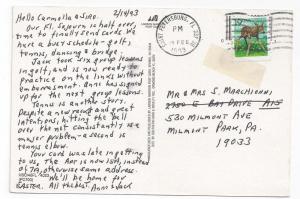 2/14/93
Hello Carmella & Sino.
Our Fl. Sojourn is half over,
time to finally send cards. We
have a busy schedule - golf,
tennis, dancing & bridge.
Jack took six group lessons
in golf, and is now ready to
practice on the links without
embarrassment. Anni has signed
up for the next group lessons.
Tennis is another story.
Despite a new racquet and great
intentions, hitting the ball
over the net consistantly is a
major problem - a second is
tennis elbow.
Your card was late in getting
to us. The Apt is now 153, instead
of 7A, otherwise same address.
We'll be home for
EASTER. All the best. Ann & Jack
ST. PETERSBURG, FL
PM
FEB
1993
MR & MRS S. MARCHIONNI
2750 E BAY DRIVE A15
530 MILMONT AVE
MILMONT PARK, PA.
19033